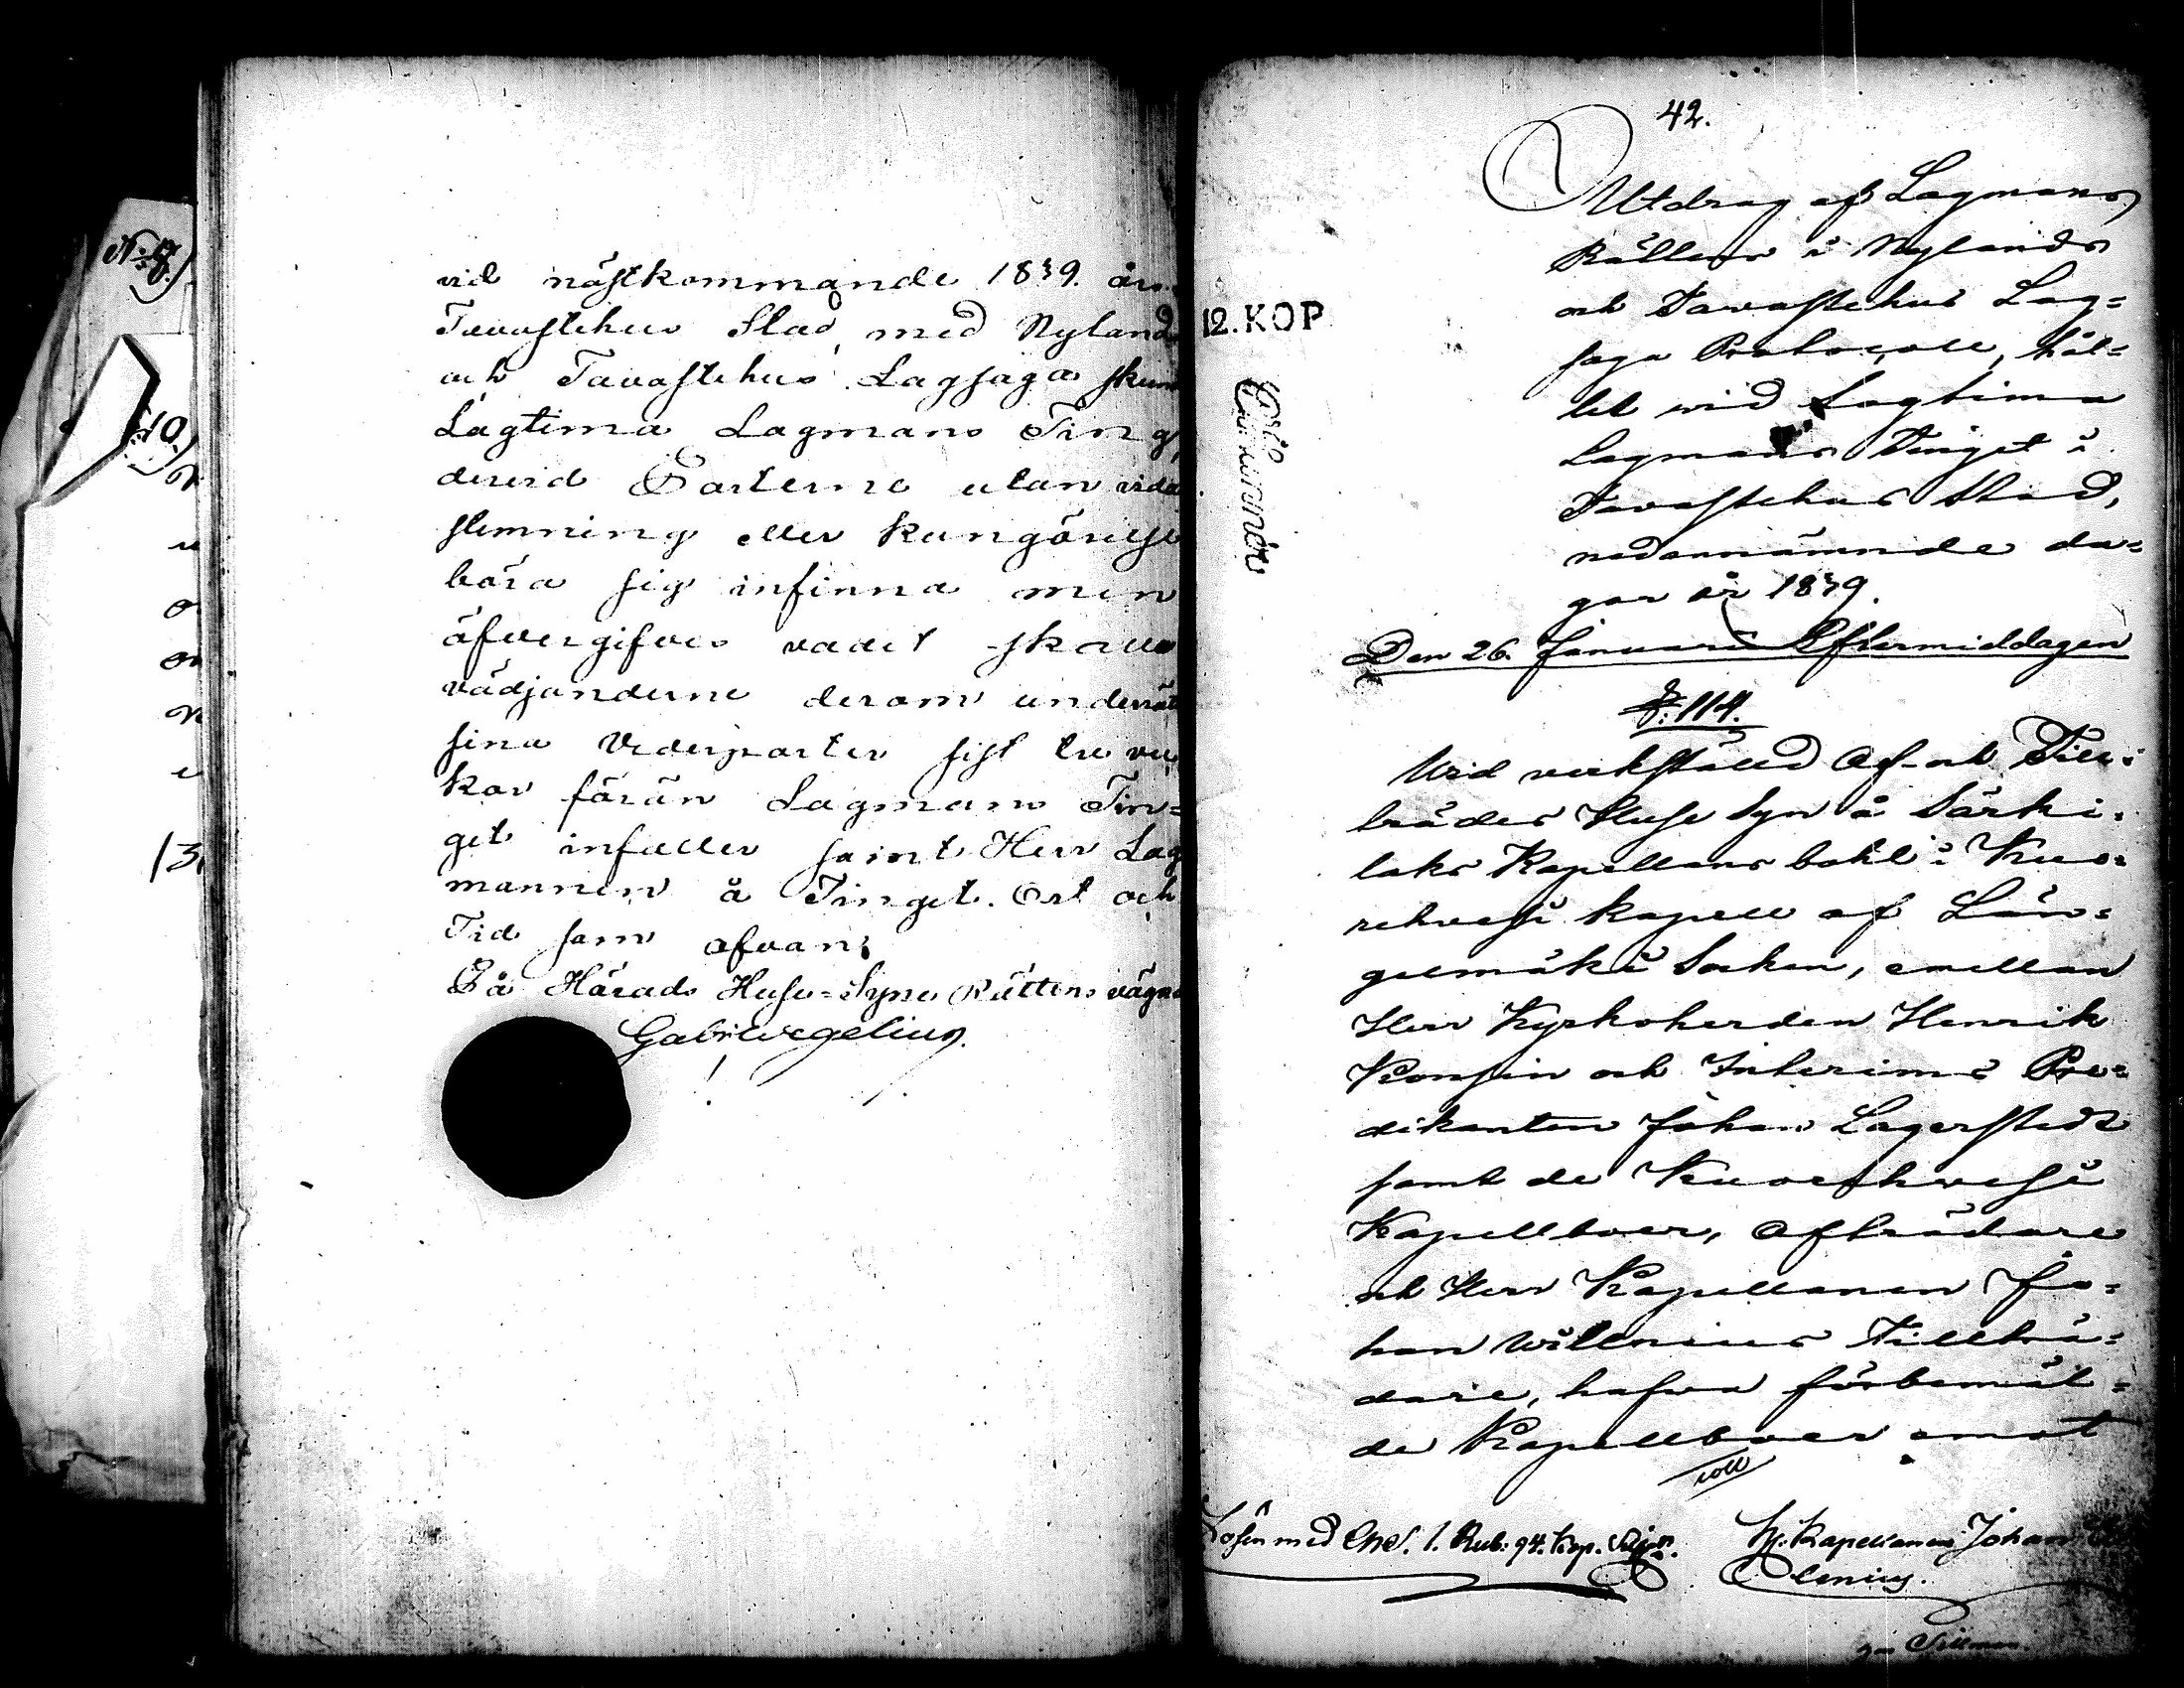 vid nästkommande 1839. års
Tavastehus Stad med Nyland
och Tavastehus Lagsaga
Lagtima Lagmans Ting,
dervid Parterne utan vida
stemning eller kungörelse
böra sig infinna men
öfvergifves vadet skall
vädjanderne derom underrät
sina Vederparter sist tre vec
kor förän Lagmans Tin=
get infaller samt Herr Lag
mannen å Tinget. Ort och
Tid som ofvan;
På Härads Huse=Syns Rättens vägna
Gabr Wegelius.
N:o 8.)
10.)
42.
12. KOP
Utdrag af Lagmans
Rättens i Nylands
och Tavastehus Lag=
saga Protocoll, hål=
lit wid Lagtima
Lagmans Tinget i
Tavastehus Stad,
nedannämnde da=
gar år 1839.
Den 26. Januarii Eftermiddagen
§. 114.
Wid verkstäld Af- och Till=
trädes Huse Syn å Särki=
laks Kapellans bohl i Kuo=
rehvesi Kapell af Län=
gelmäki Socken, emellan
Herr Kyrkoherden Henrik
Konsin och Interims Pre=
dikanten Johan Lagerstedt
samt de Kuorehvesi
Kapellboer, Afträdare
och Herr Kapellanen Jo=
han Willenius Tillträ=
dare, hafva förbemäl=
de Kapellboer emot
Lösen med Chs. 1. Rub. 94. Kop. Silfver.
Hr. Kapellanen Johan
lenius.